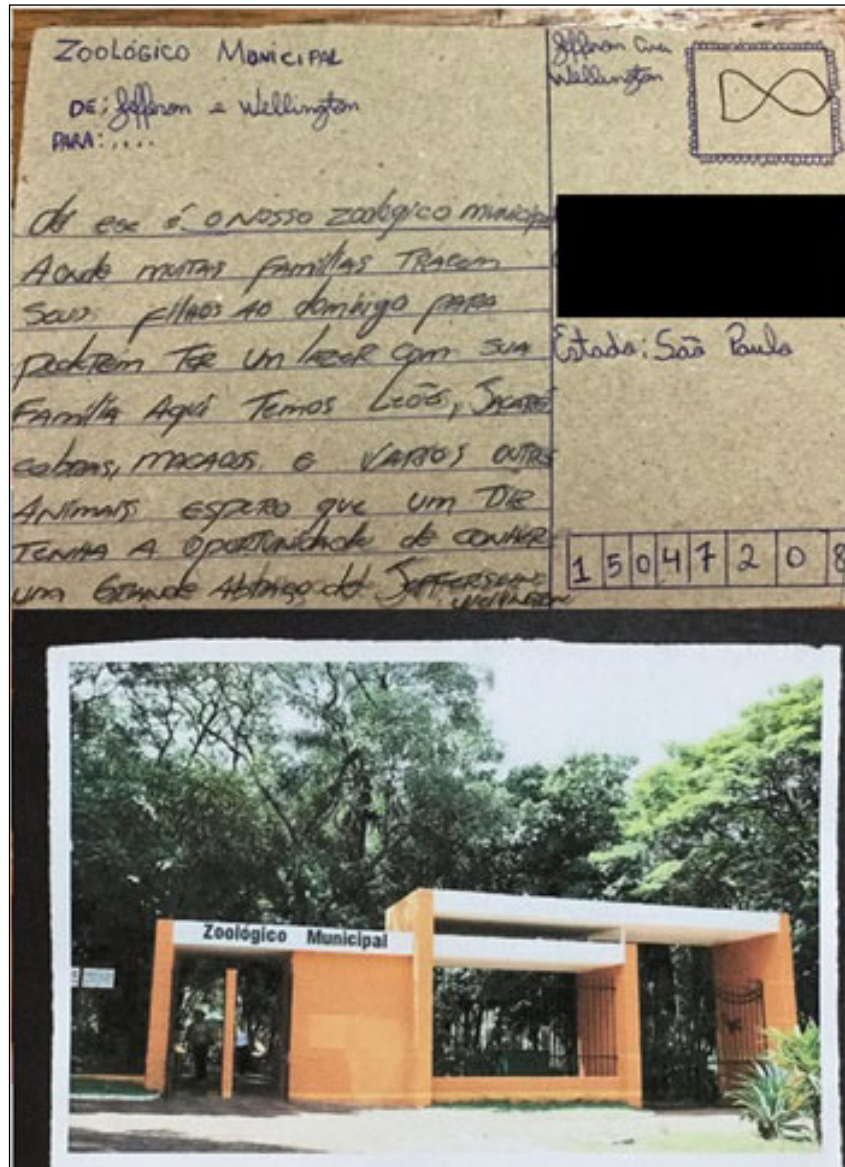 ZOOLÓGICO MUNICIPAL
DE: Jefferson e Wellington
PARA:....
esse é o NOSSO zoológico municipal
Aonde muitas famílias TRAGEM
Seus filhos AO domingo PARA
poderem TER um lazer com SUA
FAMílIA Aqui Temos Leões, JACARÉ
cobras, MACACOS E VARIOS OUTROS
ANimais ESPERO que um DIA
TENHA A OPORTUNIDADE de
um GRANDE Abraço de JEFFERSON E
WELLINGTON
Jefferson
Wellington
Estado: São Paulo
15047208
Zoológico Municipal